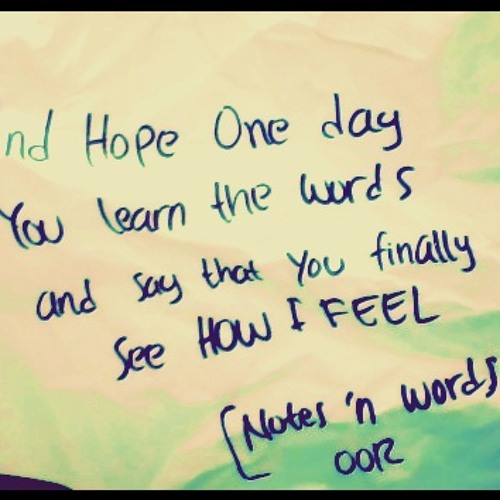 nd Hope One day
You learn the words
and say that You finally
See HOW I FEEL
[Notes 'n words
OOR